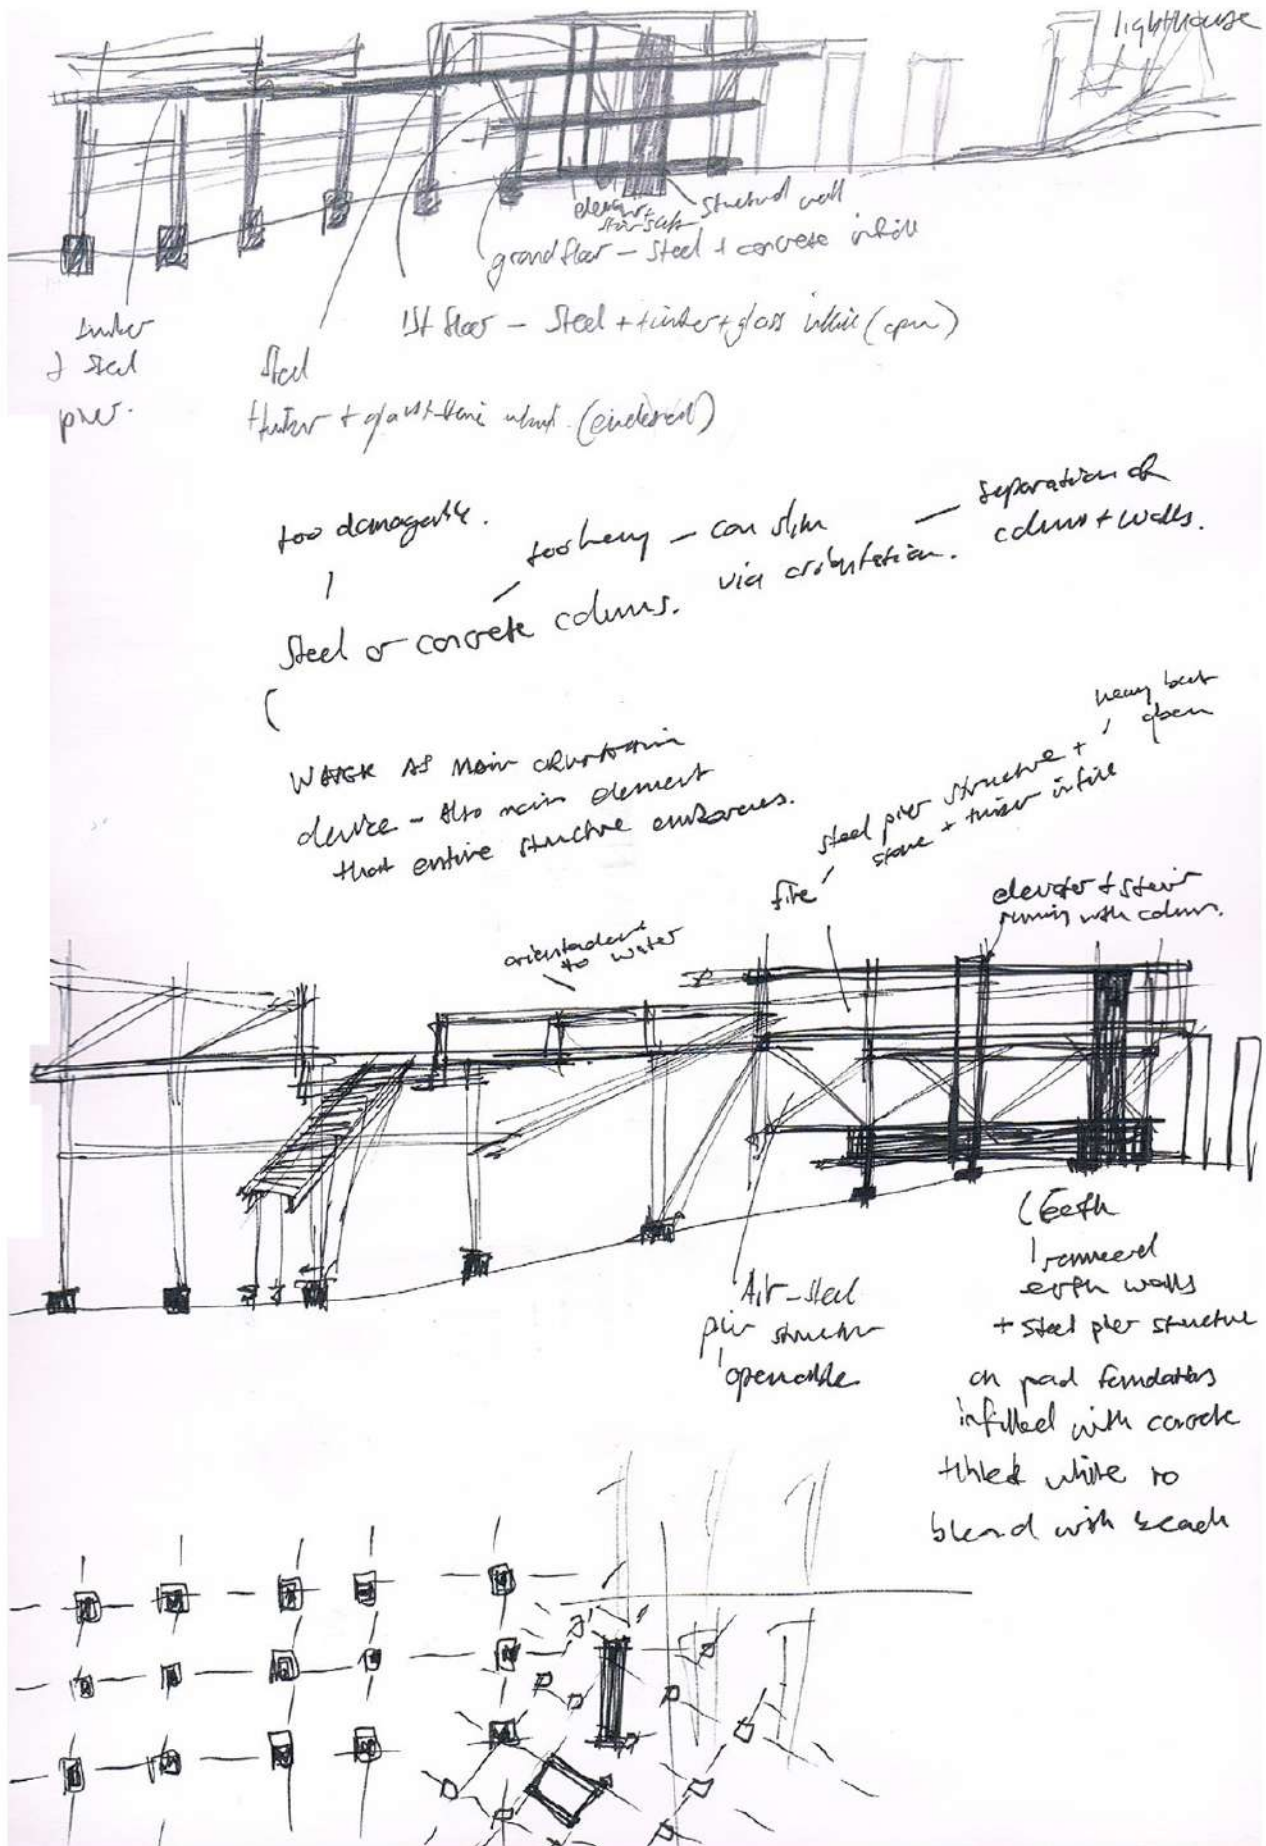 lighthouse
elevator +
stair
structural wall
ground floor - steel + concrete infill
1st floor - Steel + timber + glass infill (open)
timber
& steel
pier.
Steel
timber + glass + (enclosed)
too damagable.
too heavy - can slim
via orientation.
separation of
column + walls.
Steel or concrete colums.
WATER AS Main orientation
device - Also main element
that entire structure embraces.
heavy but
open
steel pier structure +
stone + timber infill
fire
orientaded
to water
elevator + stair
running with column.
Air - steel
pier structure
openable
Earth
rammed
earth walls
+ steel pier structure
on pad foundations
infilled with concrete
tinted white to
blend with beach